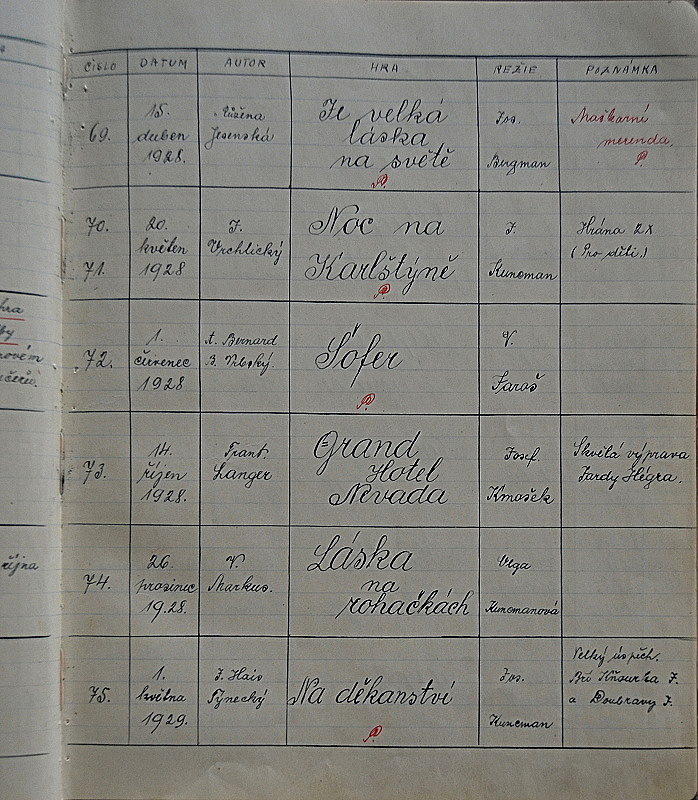 ČÍSLO DATUM AUTOR HRA REŽIE POZNÁMKA
69.
15.
duben
1928.
Růžena
Jesenská
Je velká
láska
na světě
Jos.
Bergman
Maškarní
merenda.
70.
71.
20.
květen
1928
J.
Vrchlický
Noc na
Karlštýně
J.
Kuneman
Hrána 2X
(Pro děti.)
72.
1.
červenec
1928
A. Bernard
B. Vrbský.
Šofér
V.
Faroš
73.
14.
říjen
1928.
Frant.
Langer
Grand
Hotel
Nevada
Josef.
Kmošek
Skvělá výprava
Fardy Hégra.
74.
26.
prosinec
1928.
V.
Markus.
Láska
na
rohačkách
Olga
Kunemanová
75.
1.
května
1929.
J. Hais
Týnecký
Na děkanství
Jos.
Kuneman
Velký úspěch.
Bří Kňourka F.
a Doubravy J.
hra
by
novém
října